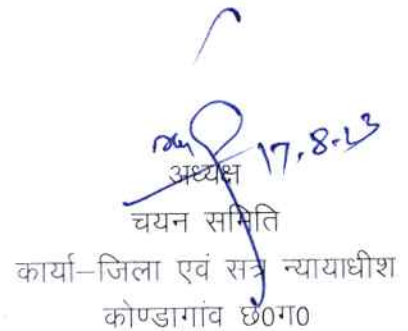 17.8.23
अध्यक्ष
चयन समिति
कार्या-जिला एवं सत्र न्यायाधीश
कोण्डागांव छ0ग0